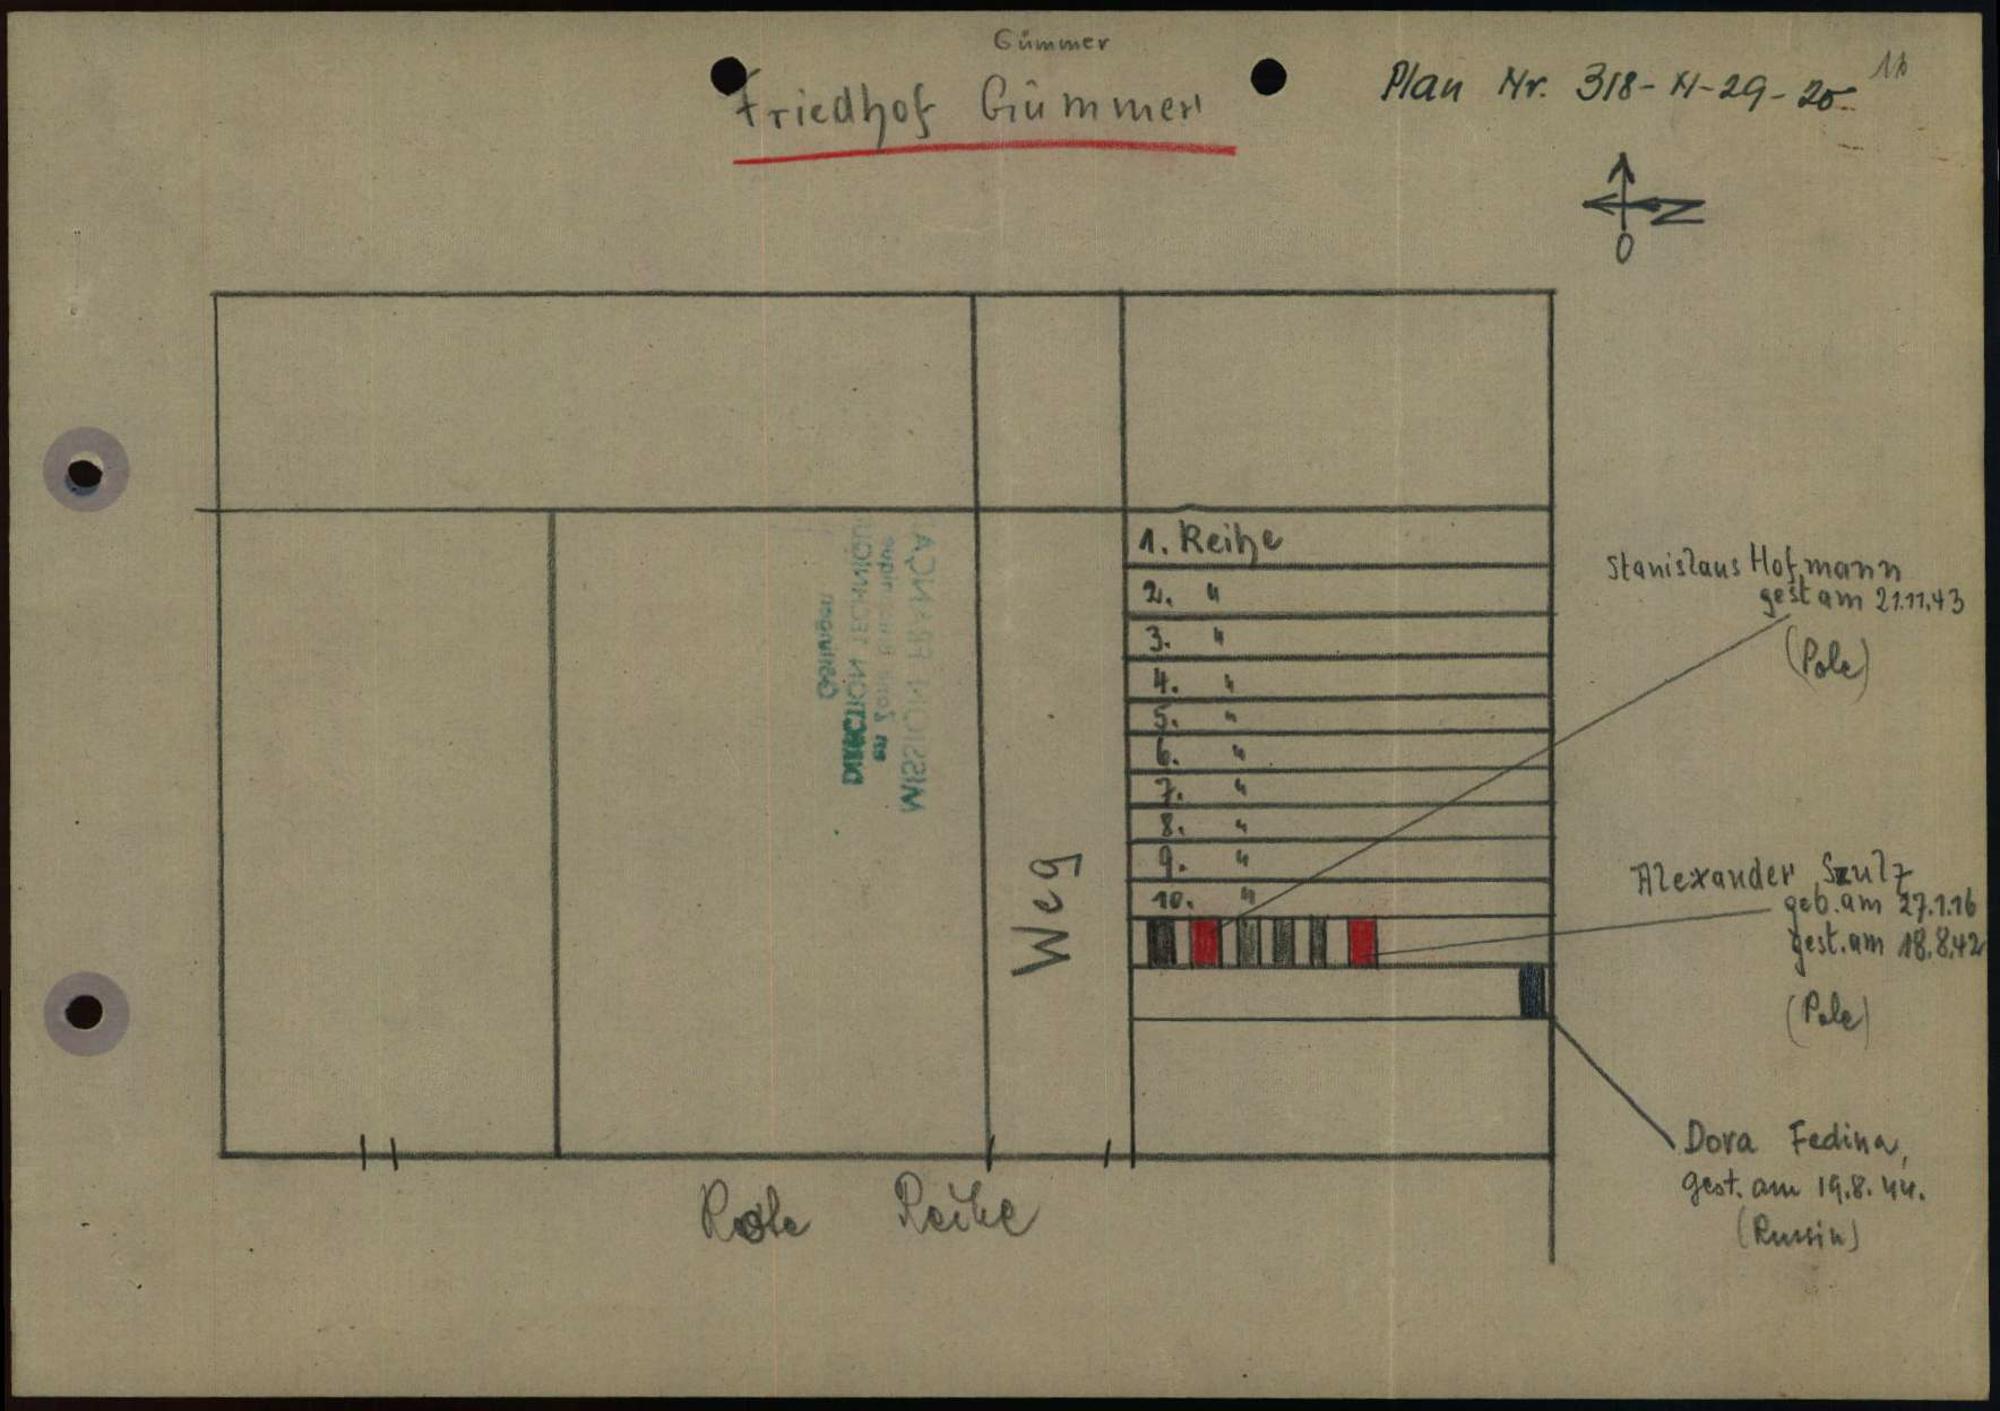 Gümmer
Friedhof Gümmer
Plan Nr. 318-H-29-20
N
O
1. Reihe
2. "
3. "
4. "
5. "
6. "
7. "
8. "
9. "
10. "
Weg
Stanislaus Hofmann
gest am 21.11.43
(Pole)
Alexander Szulz
geb. am 27.1.16
gest. am 18.8.42
(Pole)
Dora Fedina,
gest. am 19.8.44.
(Russin)
Reihe
MISSION FRANÇA
en Zone
DIRECTION TECHNIQU
Göttingen